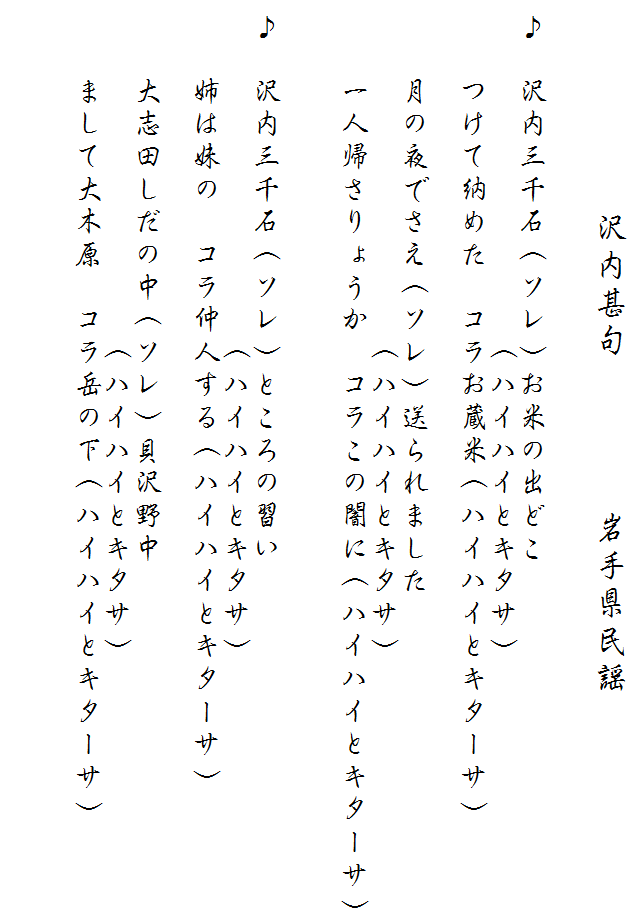 沢内甚句　岩手県民謡
♪　沢内三千石（ソレ）お米の出どこ
（ハイハイとキタサ）
つけて納めた　コラお蔵米（ハイハイとキターサ）
月の夜でさえ（ソレ）送られました
（ハイハイとキタサ）
一人帰さりょうか　コラこの闇に（ハイハイとキターサ）
♪　沢内三千石（ソレ）ところの習い
（ハイハイとキタサ）
姉は妹の　コラ仲人する（ハイハイとキターサ）
大志田しだの中（ソレ）貝沢野中
（ハイハイとキタサ）
まして大木原　コラ岳の下（ハイハイとキターサ）